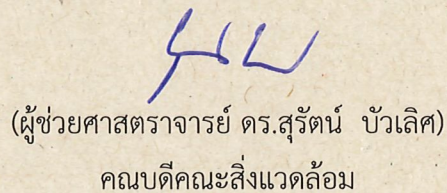 (ผู้ช่วยศาสตราจารย์ ดร.สุรัตน์ บัวเลิศ)
คณบดีคณะสิ่งแวดล้อม